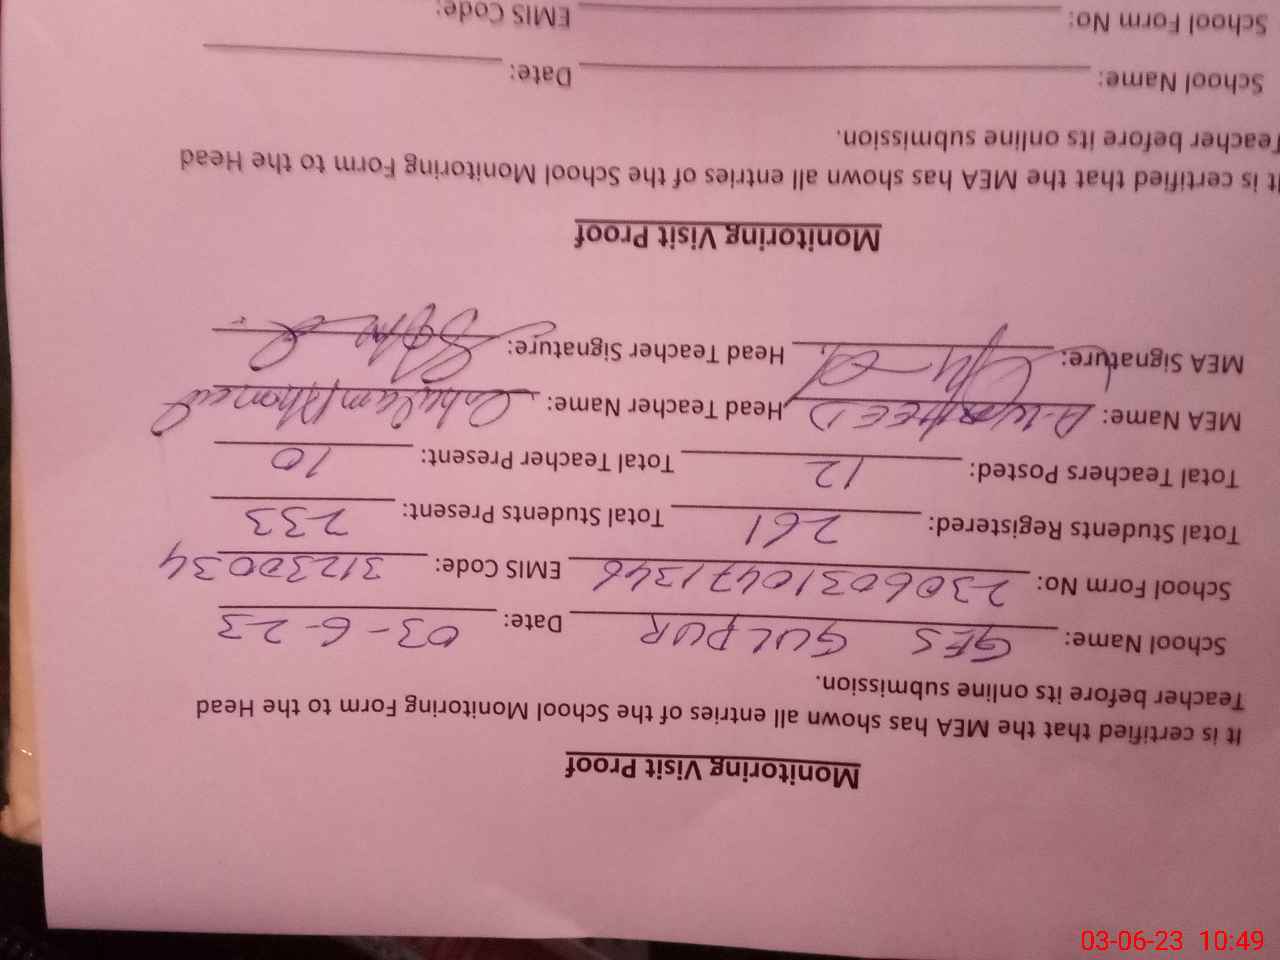 Monitoring Visit Proof
It is certified that the MEA has shown all entries of the School Monitoring Form to the Head
Teacher before its online submission.
School Name: GES GULPUR Date: 03-6-23
School Form No: 23060310471346 EMIS Code: 31230034
Total Students Registered: 261 Total Students Present: 233
Total Teachers Posted: 12 Total Teacher Present: 10
MEA Name: A-WAHEED Head Teacher Name:
MEA Signature: Head Teacher Signature:
Monitoring Visit Proof
It is certified that the MEA has shown all entries of the School Monitoring Form to the Head
Teacher before its online submission.
School Name: Date:
School Form No: EMIS Code:
03-06-23 10:49